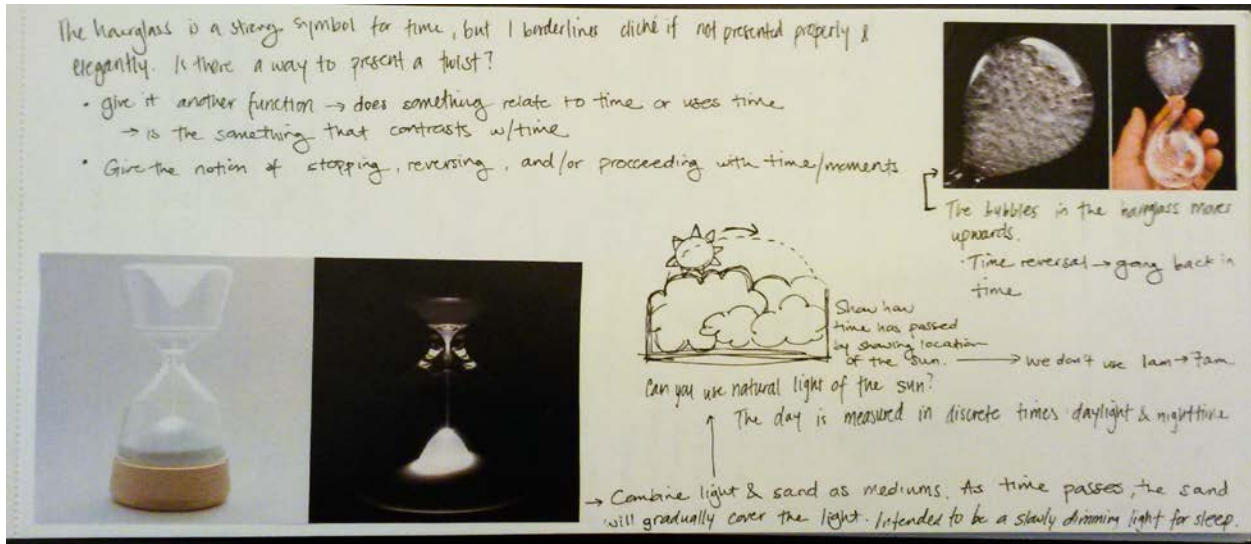 The hourglass is a strong symbol for time, but I borderlines cliché if not presented properly &
elegantly. Is there a way to present a twist?
• give it another function → does something relate to time or uses time
→ is the something that contrasts w/time
• Give the notion of stopping, reversing, and/or procceeding with time/moments
The bubbles in the hourglass moves
upwards.
• Time reversal → going back in
time
Show how
time has passed
by showing location
of the sun. → we don't use 1am → 7am
Can you use natural light of the sun?
The day is measured in discrete times daylight & nighttime
→ Combine light & sand as mediums. As time passes, the sand
will gradually cover the light. Intended to be a slowly dimming light for sleep.